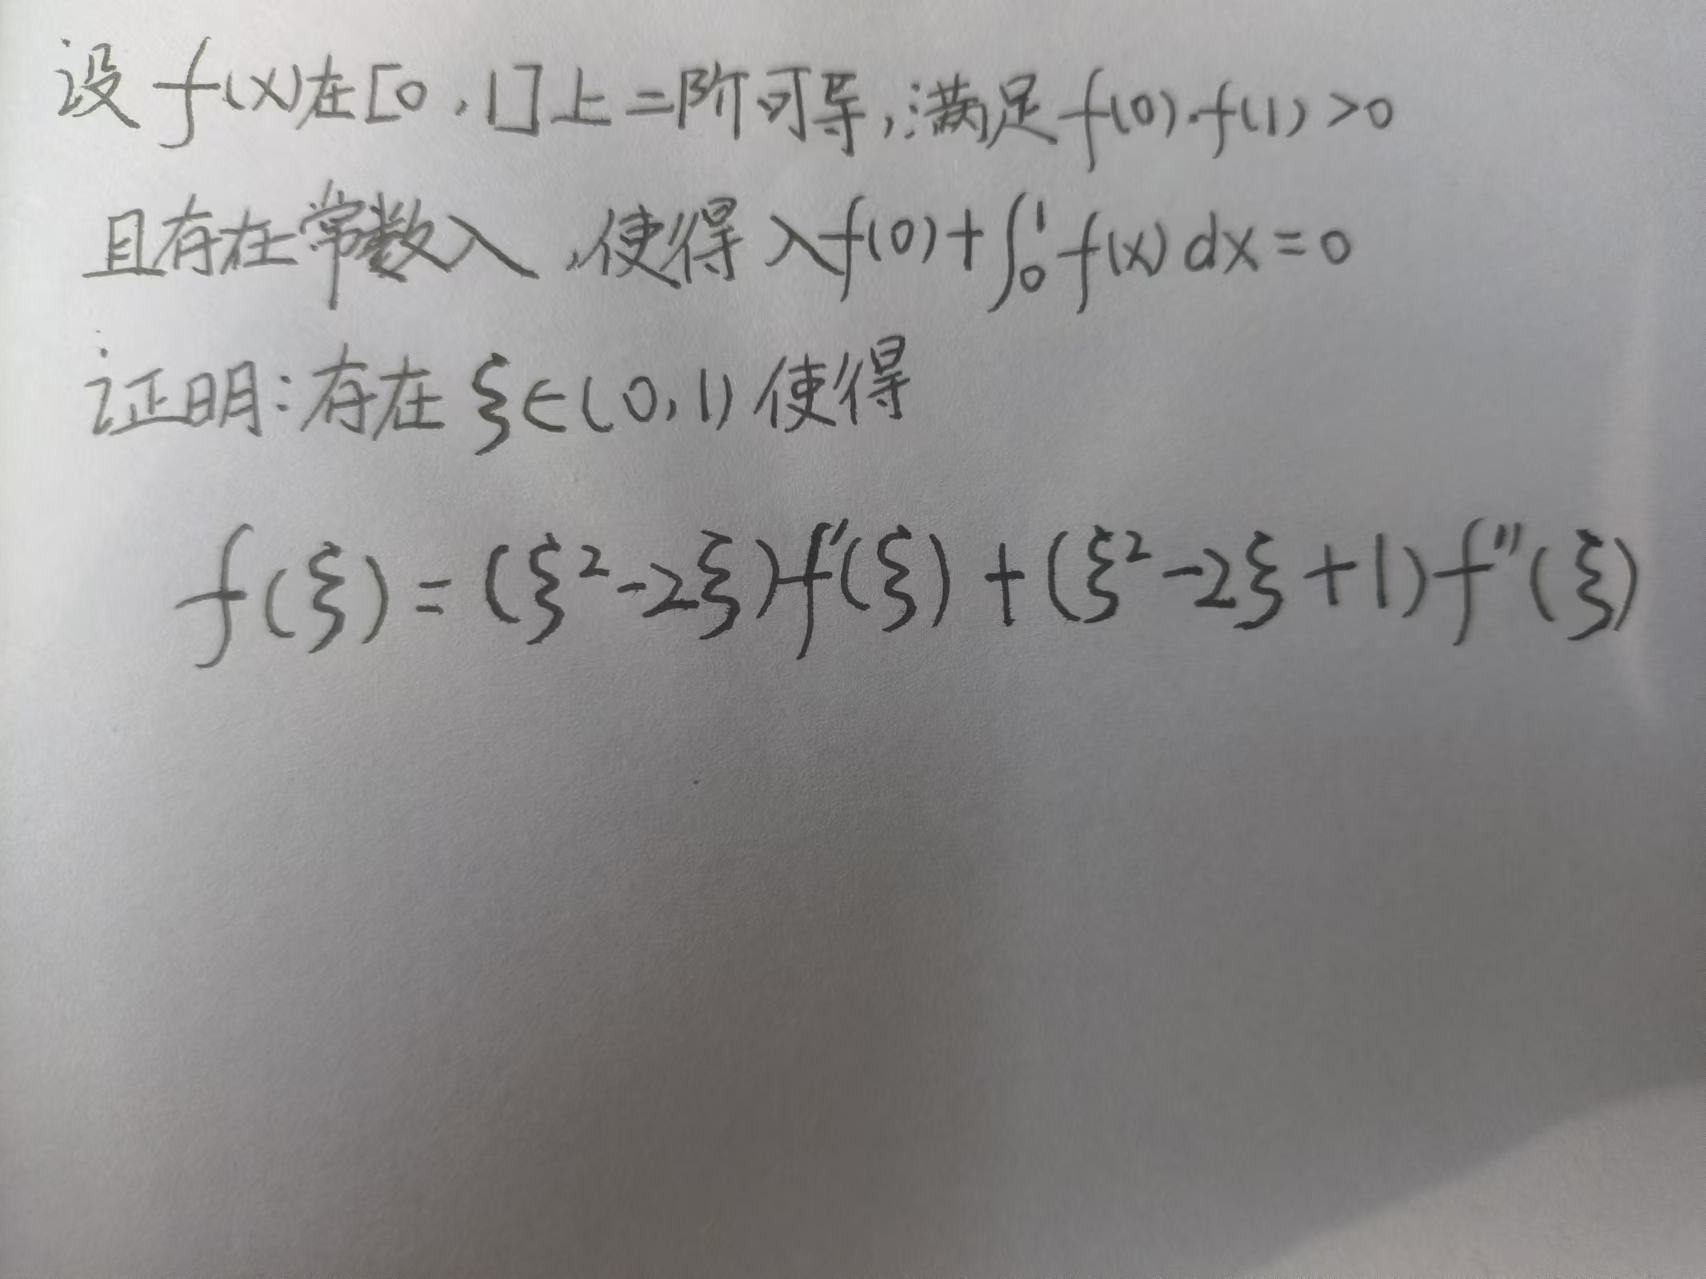 设 f(x)在[0,1]上二阶可导,满足f(0)·f(1)>0
且存在常数λ,使得 λf(0)+∫₀¹f(x)dx=0
证明:存在ξ∈(0,1)使得
f(ξ)=(ξ²-2ξ)f'(ξ)+(ξ²-2ξ+1)f''(ξ)